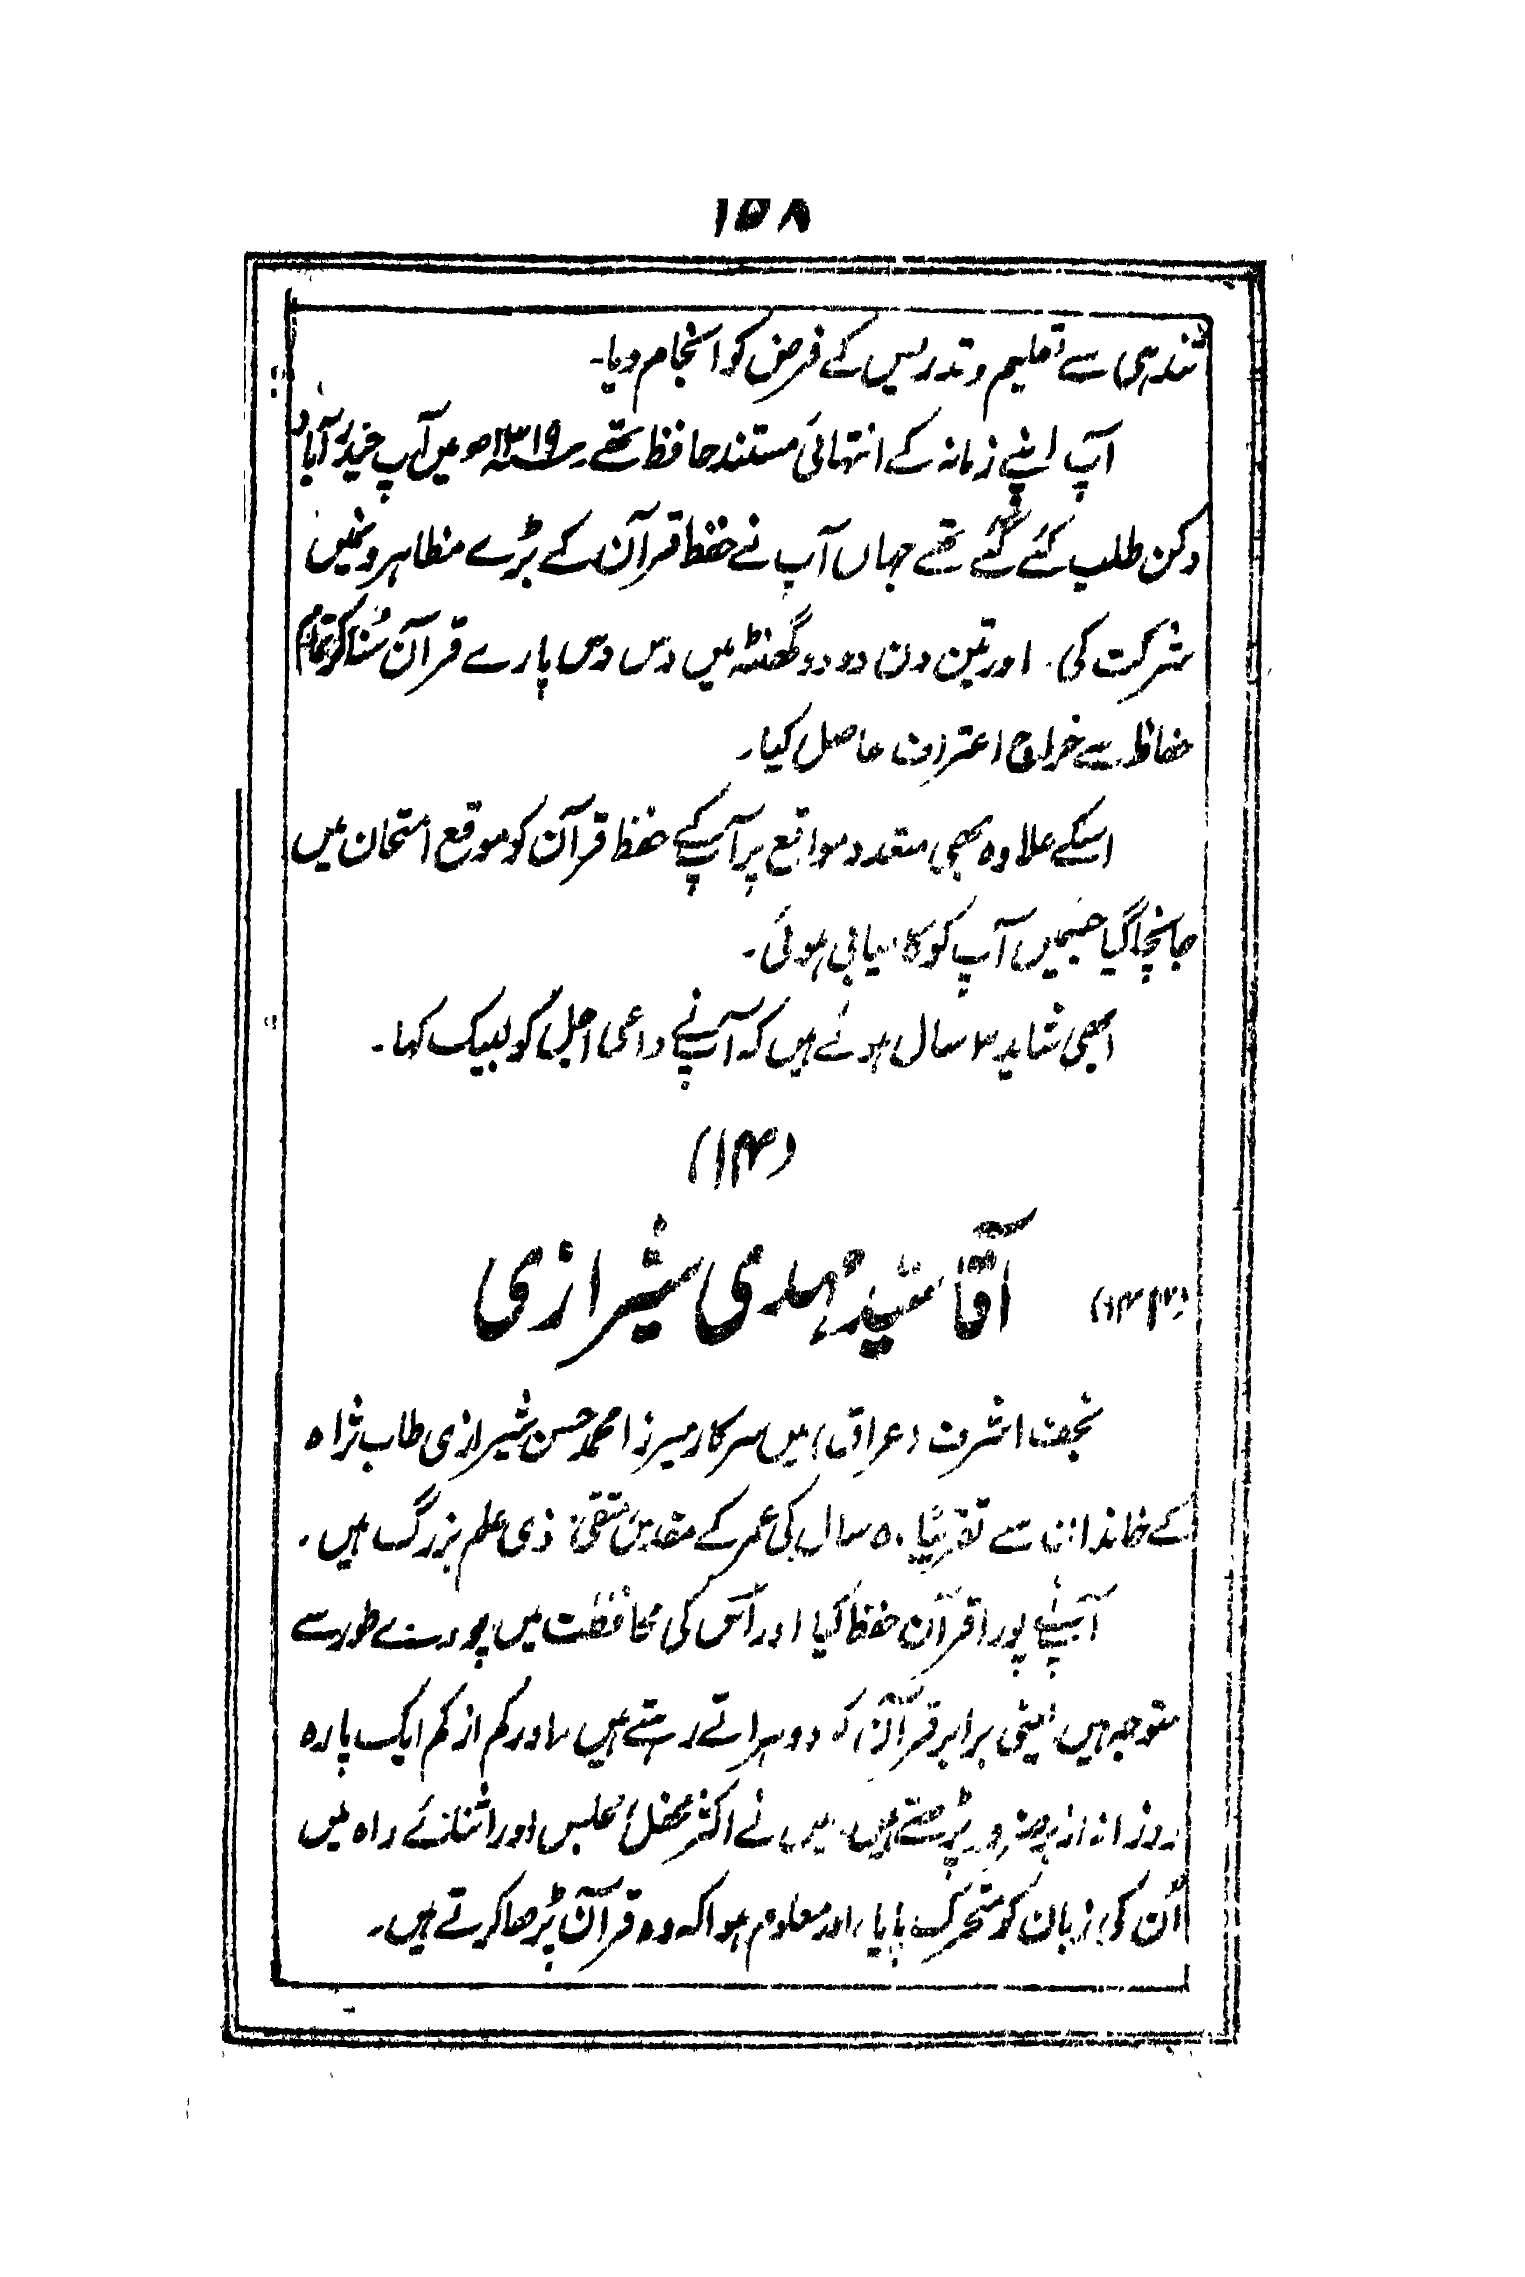 ۱۵۸
تندہی سے تعلیم و تدریس کے فرض کو انجام دیا۔
آپ اپنے زمانہ کے انتہائی مستند حافظ تھے۔ ۱۳۱۹ھ میں آپ حیدرآباد
دکن طلب کئے گئے تھے جہاں آپ نے حفظ قرآن کے بڑے مظاہرونمیں
شرکت کی۔ اور تین دن دو دو گھنٹہ میں دس دس پارے قرآن سُنا کر تمام
حفاظ سے خراج اعتراف حاصل کیا۔
اسکے علاوہ بھی متعدد مواقع پر آپکے حفظ قرآن کو موقع امتحان میں
جانچا گیا جسمیں آپ کو کامیابی ہوئی۔
ابھی شاید ۳ سال ہوئے ہیں کہ آپنے داعی اجل کو لبیک کہا۔
(۱۴)
آقا سید مُہدی شیرازی
نجف اشرف (عراق) میں سرکار میرزا محمد حسن شیرازی طاب ثراہ
کے خاندان سے تقریباً ۵۰ سال کی عمر کے مقدس متقی ذی علم بزرگ ہیں۔
آپنے پورا قرآن حفظ کیا اور اُس کی محافظت میں پورے طور سے
متوجہ ہیں یعنی برابر قرآن کو دوہراتے رہتے ہیں، اور کم از کم ایک پارہ
روزانہ ضرور پڑھتے ہیں۔ میں نے اکثر محفل، مجلس اور اثنائے راہ میں
اُن کی زبان کو متحرک پایا، اور معلوم ہوا کہ وہ قرآن پڑھا کرتے ہیں۔